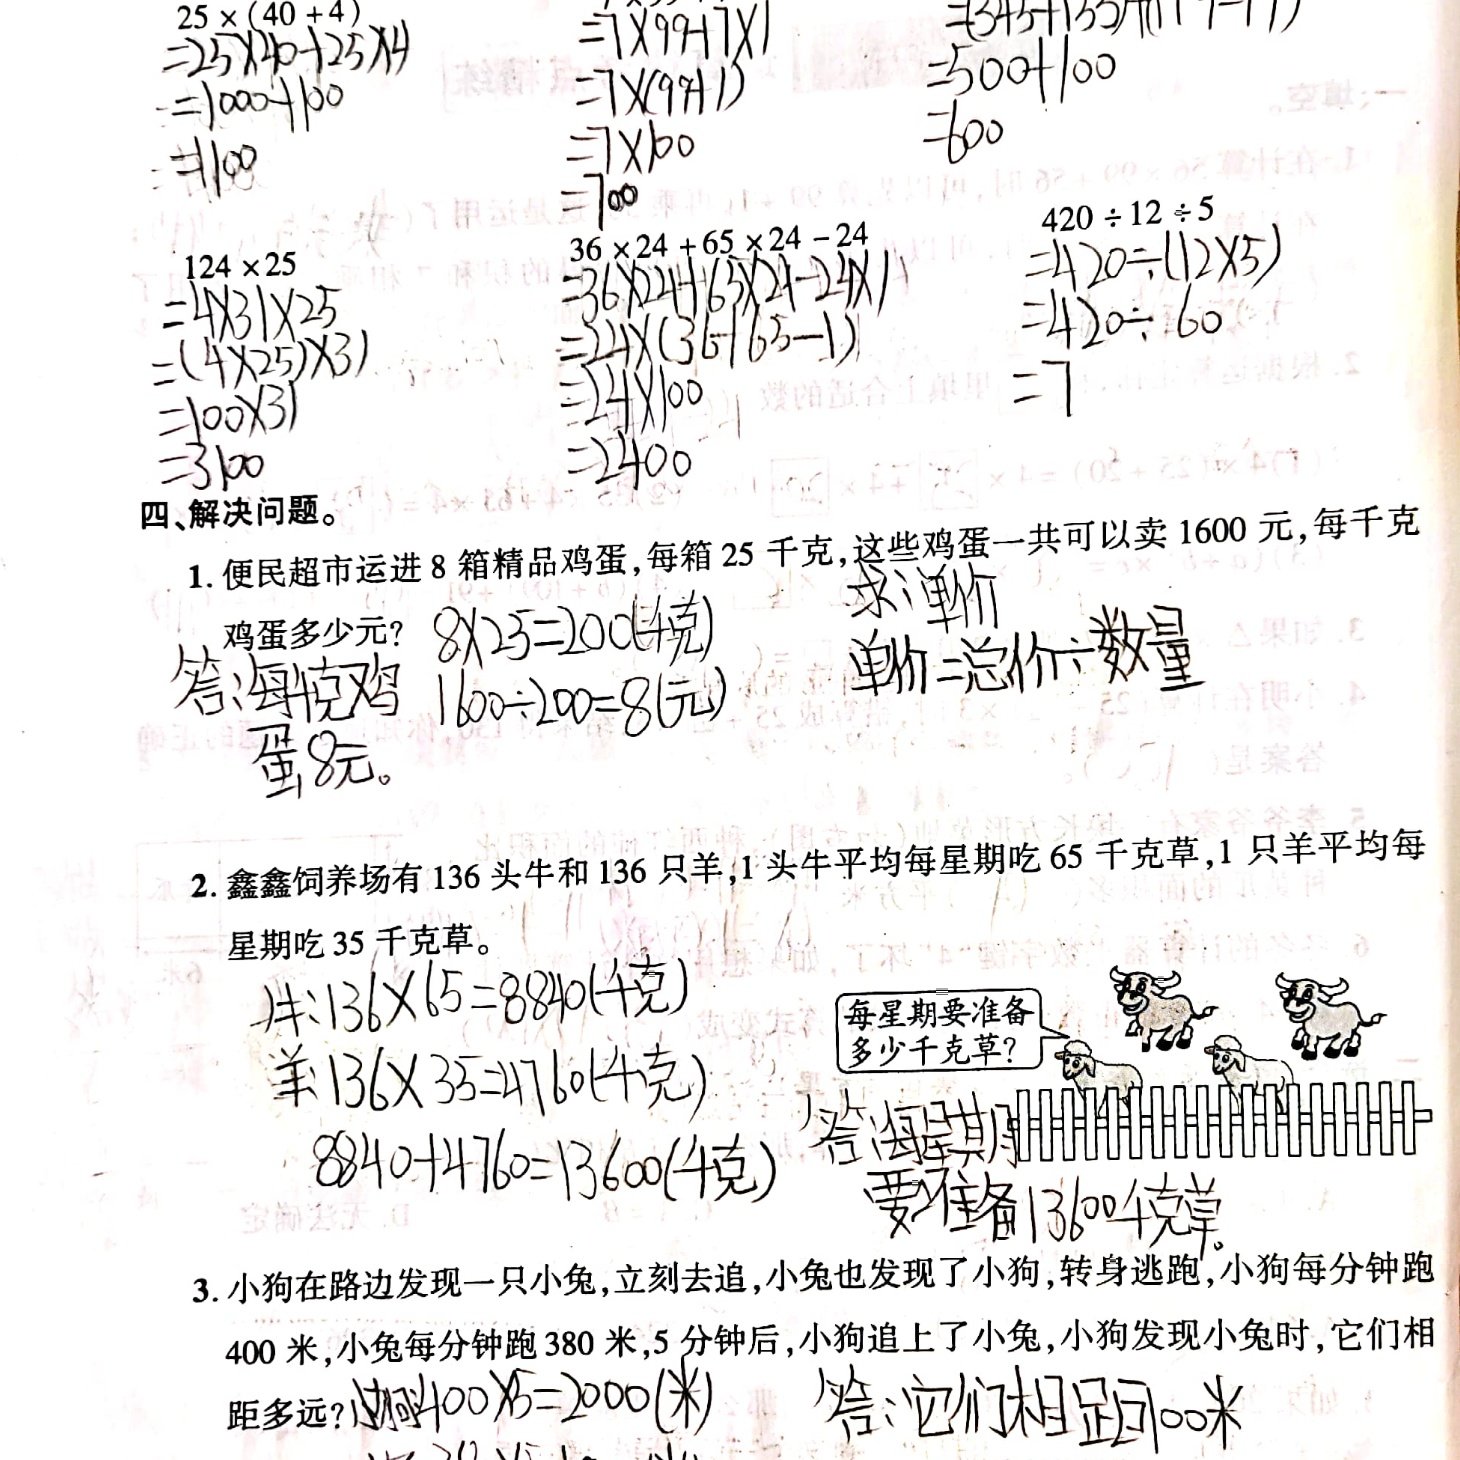 25×(40+4)
=25×40+25×4
=1000+100
=1100
=7×99+7×1
=7×(99+1)
=7×100
=700
=500+100
=600
124×25
=4×31×25
=(4×25)×31
=100×31
=3100
36×24+65×24-24
=36×24+65×24-24×1
=24×(36+65-1)
=24×100
=2400
420÷12÷5
=420÷(12×5)
=420÷60
=7
四、解决问题。
1. 便民超市运进8箱精品鸡蛋,每箱25千克,这些鸡蛋一共可以卖1600元,每千克
鸡蛋多少元?
8×25=200(千克)
1600÷200=8(元)
求:单价
单价=总价÷数量
答:每千克鸡
蛋8元。
2. 鑫鑫饲养场有136头牛和136只羊,1头牛平均每星期吃65千克草,1只羊平均每
星期吃35千克草。
牛:136×65=8840(千克)
羊:136×35=4760(千克)
8840+4760=13600(千克)
每星期要准备
多少千克草?
答:每星期
要准备13600千克草。
3. 小狗在路边发现一只小兔,立刻去追,小兔也发现了小狗,转身逃跑,小狗每分钟跑
400米,小兔每分钟跑380米,5分钟后,小狗追上了小兔,小狗发现小兔时,它们相
距多远?
小狗:400×5=2000(米)
答:它们相距100米